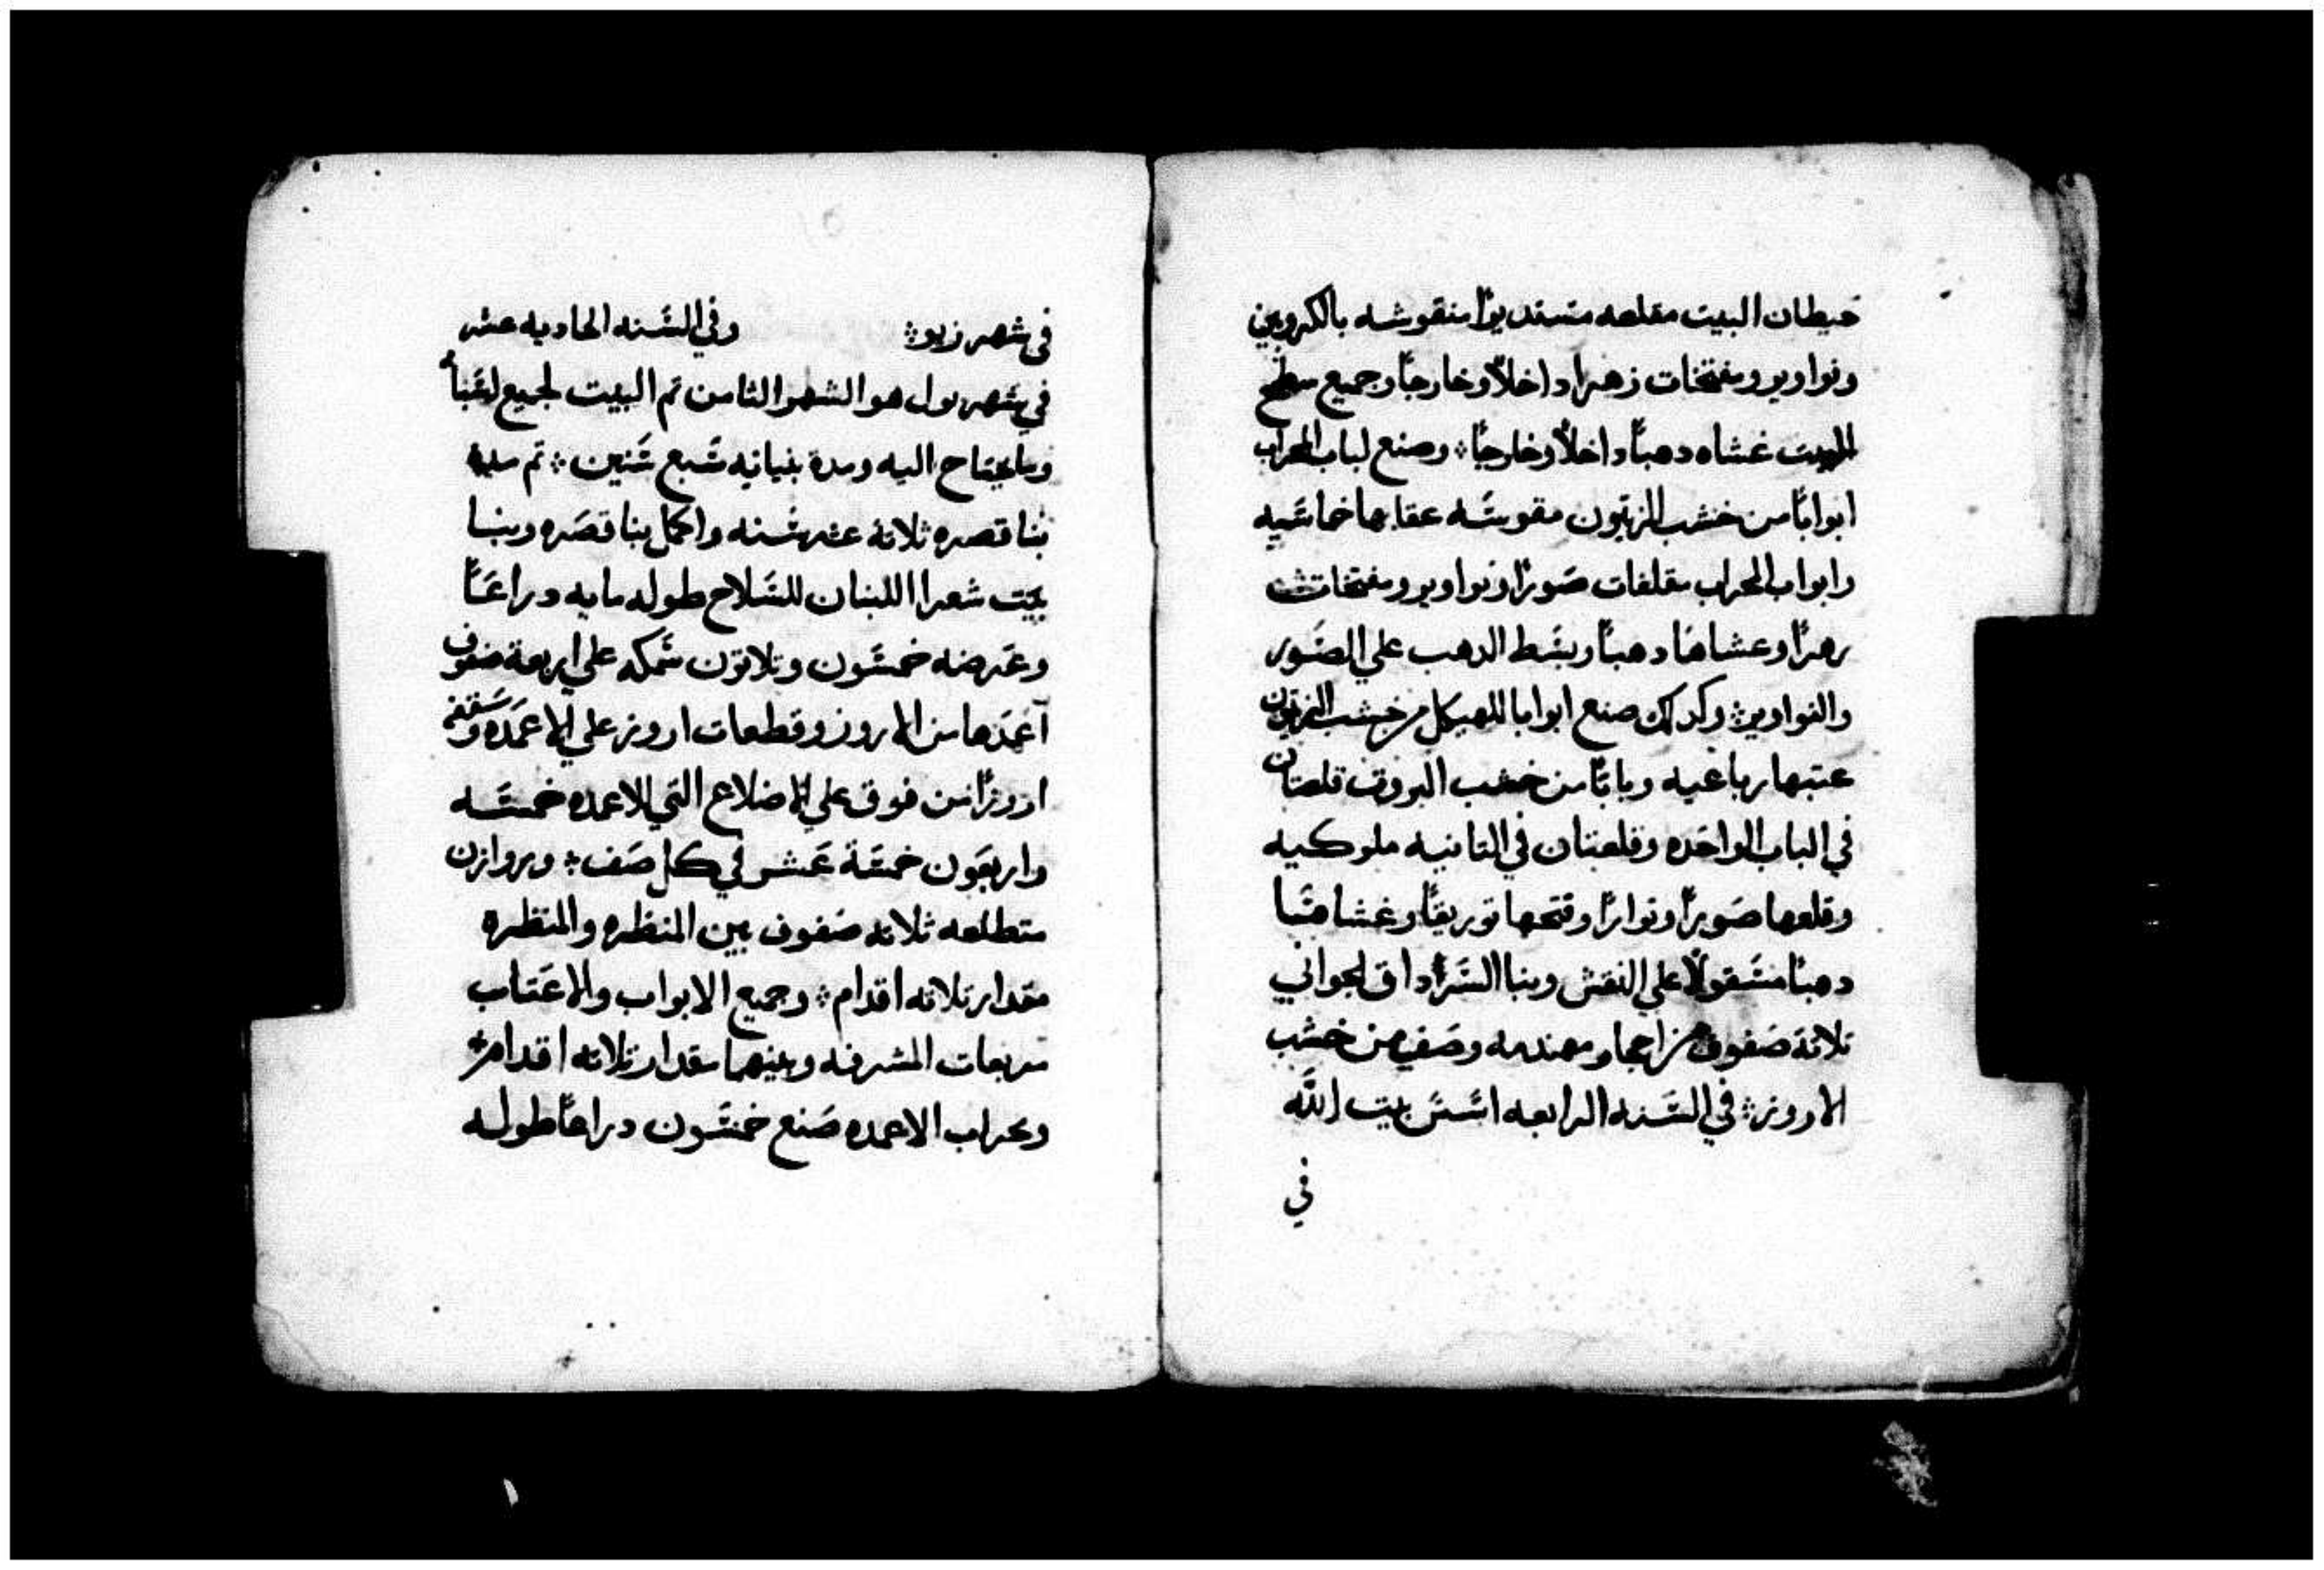 حيطان البيت مقلعه مستديرًا منقوشه بالكروبين
ونواوير ومفتحات زهرا داخلاً وخارجاً وجميع سطح
البيت غشاه دهباً داخلاً وخارجاً ؛ وصنع لباب المحراب
ابواباً من خشب الزيتون مقوسَه عقابها خماسَيه
وابواب المحراب مقلفات صَورًا ونواوير ومفتحات
زهرًا وغشاها دهباً وبسَط الدهب علي الصَور
والنواوير ؛ وكدلك صنع ابوابا للهيكل من خشب الزيتون
عتبها رباعيه وباباً من خشب البروت قلعتان
في الباب الواحَده وقلعتان في التانيه ملوكيه
وقلعها صَورًا ونوارًا وفتحها توريقاً وغشاهَا
دهباً مسَقولاً علي النقش وبنا السَرادق الجواني
تلاتة صَفوف حزاجها ومهندمه وصَف من خشب
الاروز ؛ في السَنه الرابعه اسَسَ بيت اللَّه
في
في شهر زيو ؛ وفي السَنه الحاديه عشر
في شهر بول هو الشهر التامن تم البيت لجميع
وما يحتاج اليه ومدة بنيانه سَبع سَنين ؛ تم مدة
بنا قصره ثلاتة عشر سَنه واكمل بنا قصَره وبنا
بيَت شعرا اللبنان للسَلاح طوله مايه دراعَاً
وعَرضه خمسَون وتلاتون سَمكه علي اربعة صَفوف
آعمَدها من الاروز وقطعات اروز علي الاعمَده وسَقفه
اروزًا من فوق علي الاضلاع التي الاعمده خمسَه
واربعَون خمسَة عَشر في كل صَف ؛ وروازن
متطلعه ثلاته صَفوف بين المنظره والمنظره
مقدار تلاته اقدام ؛ وجميع الابواب والاعَتاب
مربعات المشرفه وبينهما مقدار تلاته اقدام ؛
ومحراب الاعمده صَنع خمسَون دراعاً طوله